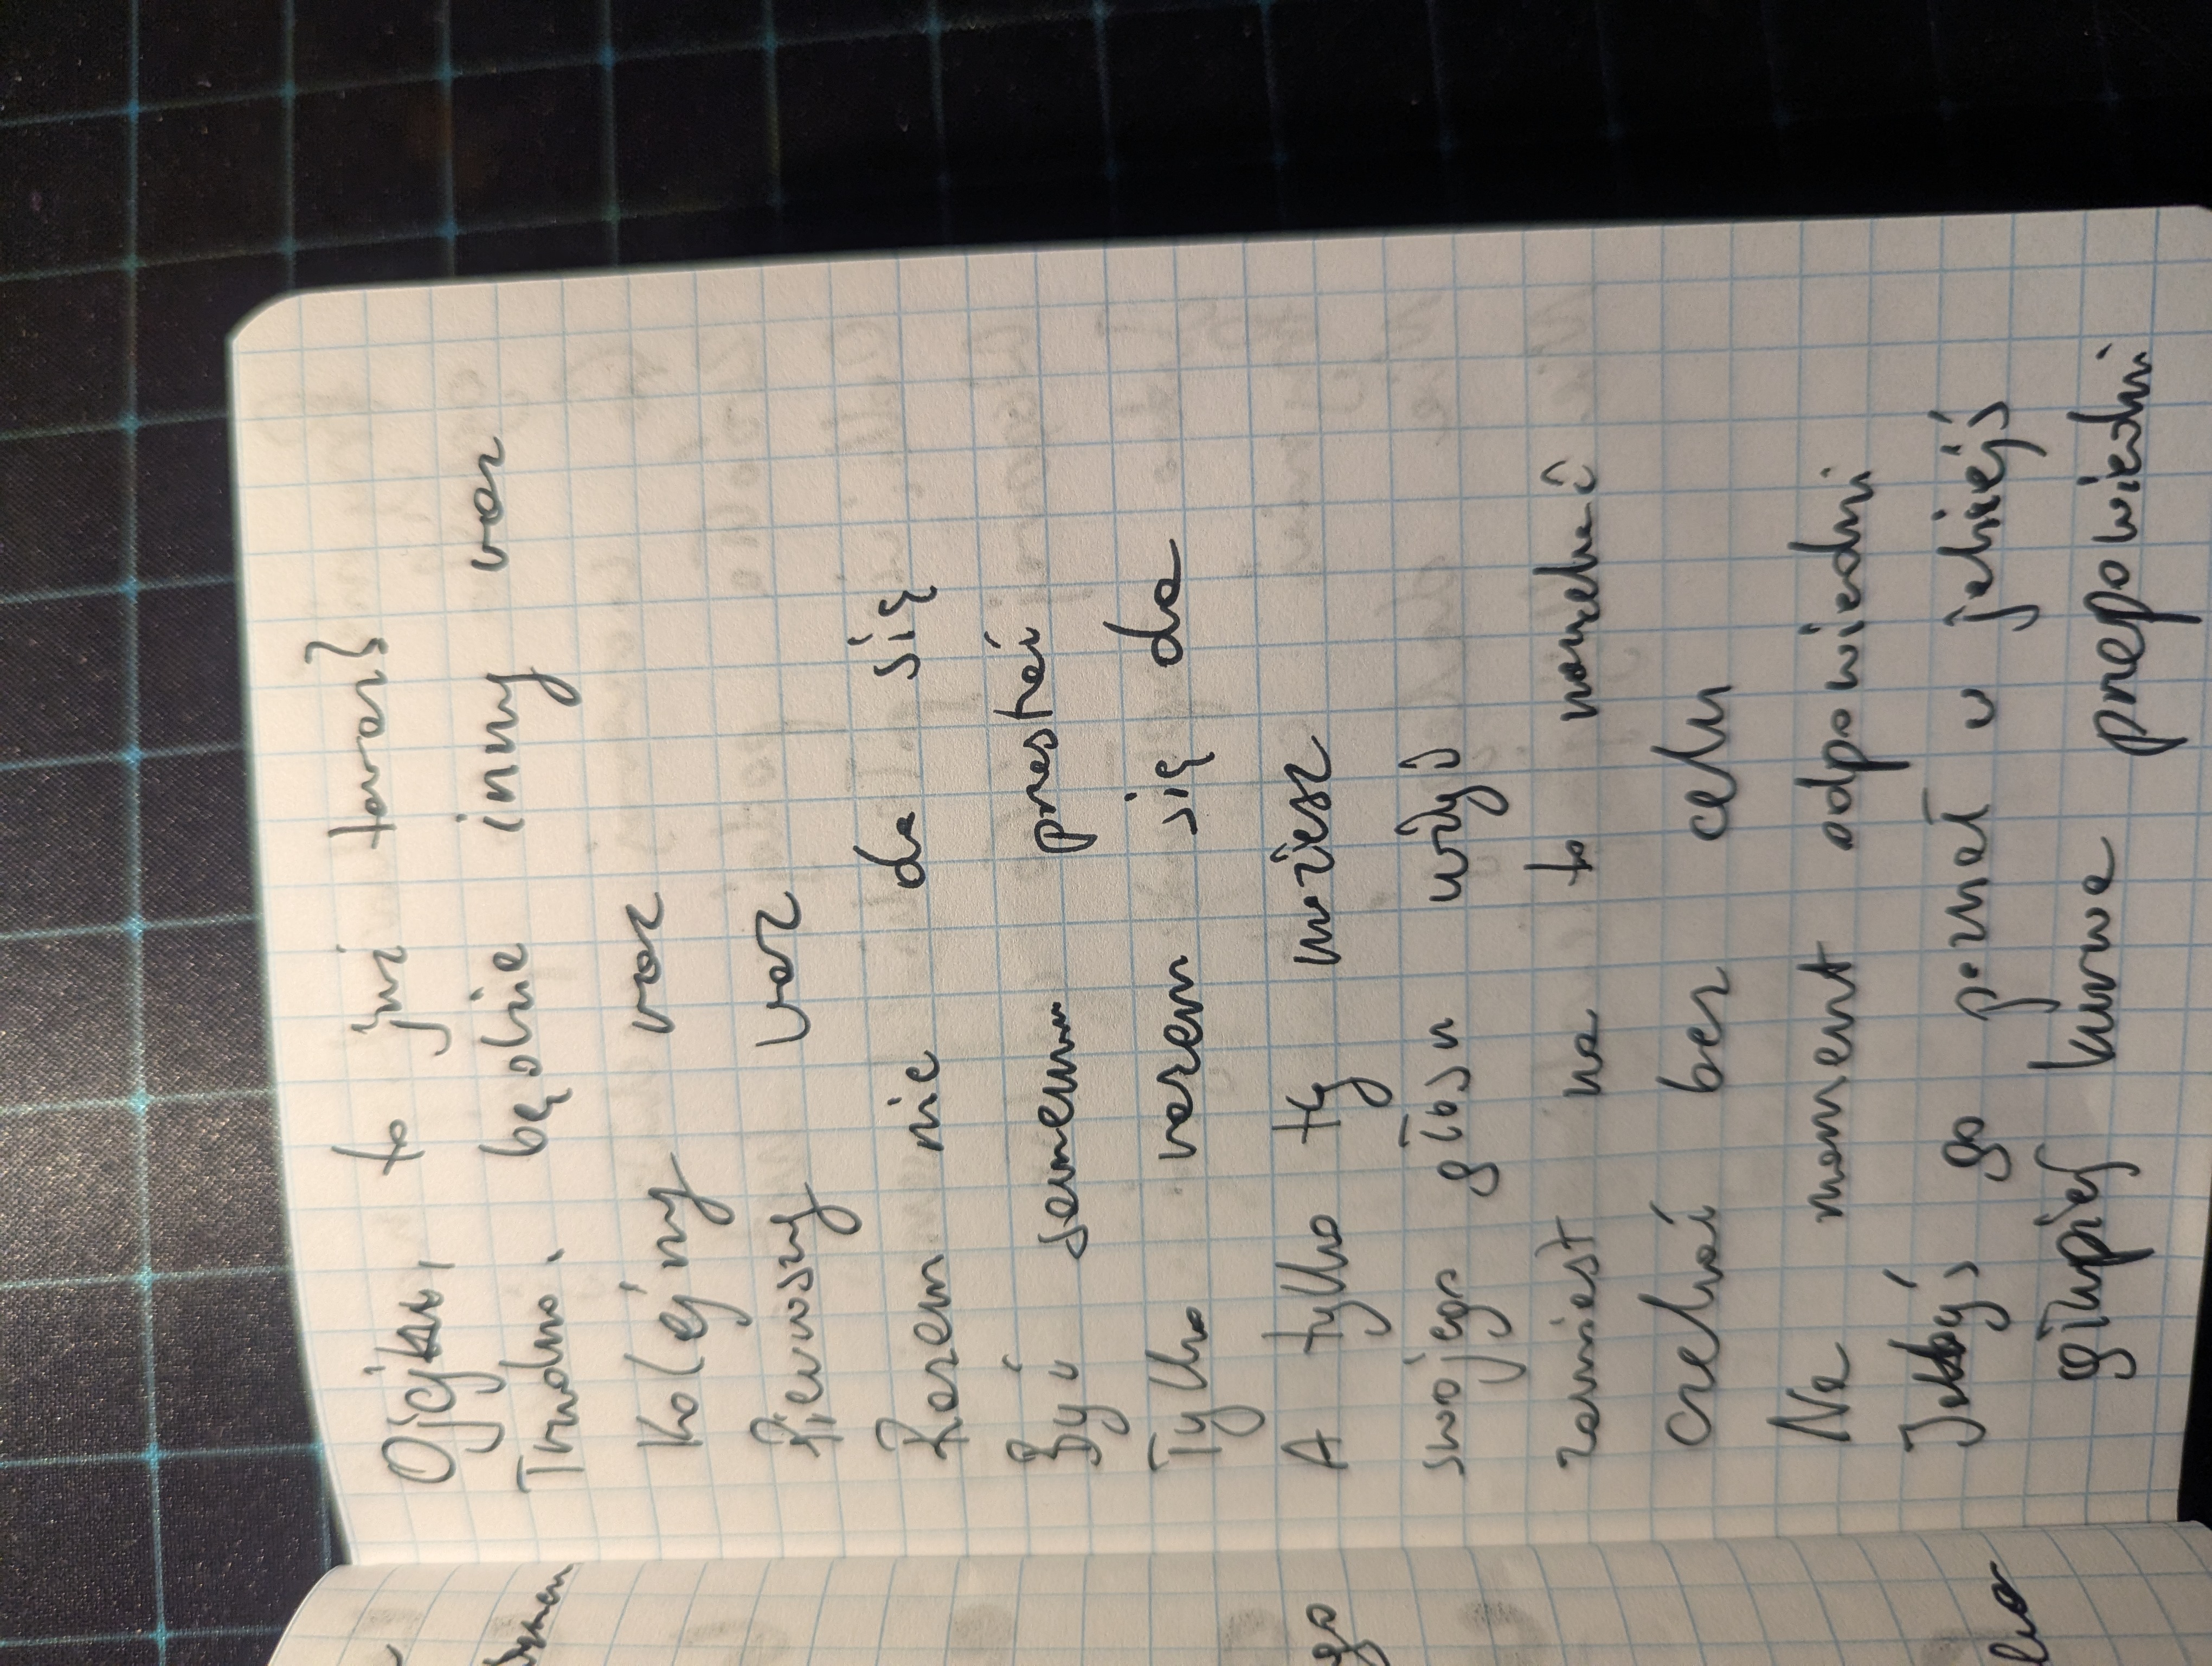 Ojejku, to już teraz?
Trudno. będzie inny raz
Kolejny raz
Pierwszy raz
Razem nie da się
Być samemu przestać
Tylko razem się da
A tylko ty możesz
swojego głosu użyć
zamiast na to narzekać
czekać bez celu
Na moment odpowiedni
Jakbyś go poznał w jakiejś
głupiej kurwa przepowiedni